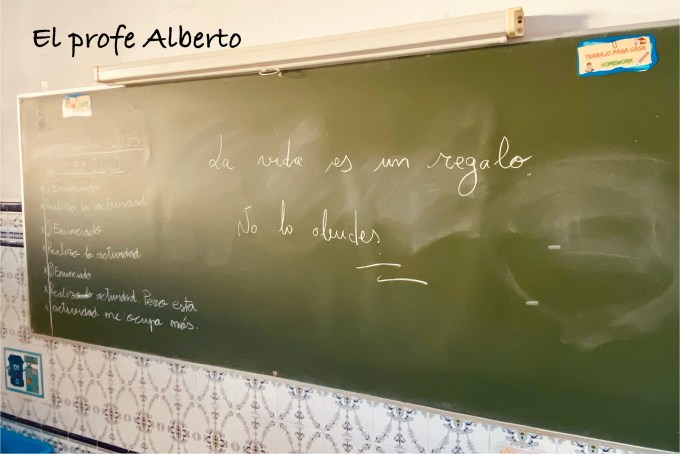 El profe Alberto
TRABAJO PARA CASA
HOMEWORK
La vida es un regalo.
No lo olvides.
Enunciado
Realizo la actividad
Enunciado
Realizo la actividad
Enunciado
Realizo la actividad. Pero esta
actividad me ocupa más.